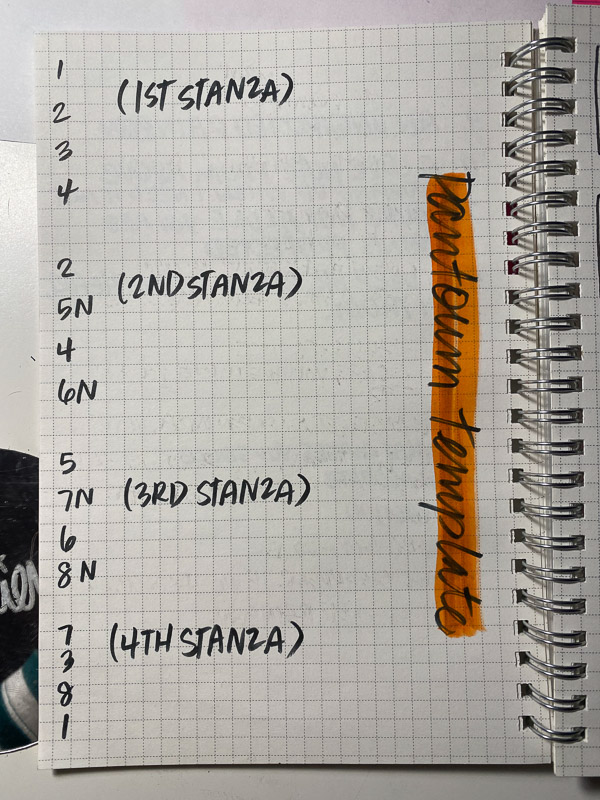 1
(1ST STANZA)
2
3
4
2
(2ND STANZA)
5N
4
6N
5
7N (3RD STANZA)
6
8N
7 (4TH STANZA)
3
8
1
Pantoum template